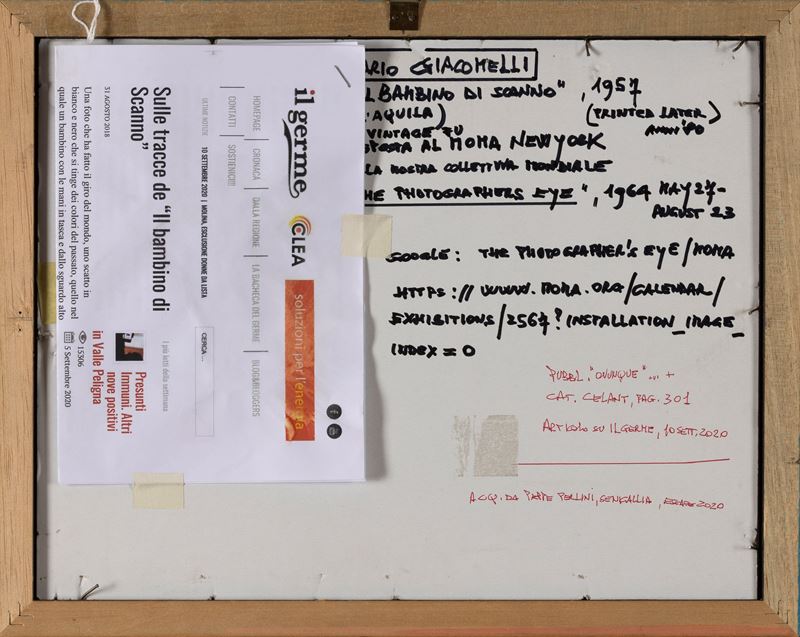 ARIO GIACOMELLI
L BAMBINO DI SCANNO", 1957
'AQUILA) (PRINTED LATER)
VINTAGE FU ANNI '80
SPOSTA AL MOMA NEW YORK
LA MOSTRA COLLETTIVA MONDIALE
HE PHOTOGRAPHERS EYE", 1964 MAY 27-
AUGUST 23
GOOGLE: THE PHOTOGRAPHER'S EYE/MOMA
HTTPS://WWW.MOMA.ORG/CALENDAR/
EXHIBITIONS/2567?INSTALLATION_IMAGE_
INDEX=0
PUBBL. "OVUNQUE"... +
CAT. CELANT, PAG. 301
ARTICOLO SU IL GERME, 10 SETT. 2020
ACQ. DA PEPPE PERLINI, SENIGALLIA, ESTATE 2020
il germe
CLEA
soluzioni per l'energia
HOMEPAGE
CRONACA
DALLA REGIONE
LA BACHECA DEL GERME
BLOG&BLOGGERS
CONTATTI
SOSTIENICI!!!
ULTIME NOTIZIE
10 SETTEMBRE 2020 | MOLINA, ESCLUSIONE DONNE DA LISTA
CERCA...
Sulle tracce de "Il bambino di
Scanno"
31 AGOSTO 2018
Una foto che ha fatto il giro del mondo, uno scatto in
bianco e nero che si tinge dei colori del passato, quello nel
quale un bambino con le mani in tasca e dallo sguardo alto
I più letti della settimana
Presunti
Immuni. Altri
nove positivi
in Valle Peligna
15306
5 Settembre 2020